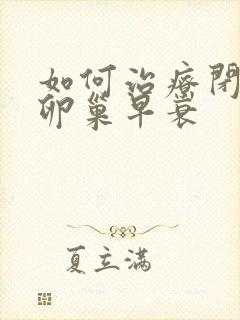 如何治疗闭
卵巢早衰
夏立满